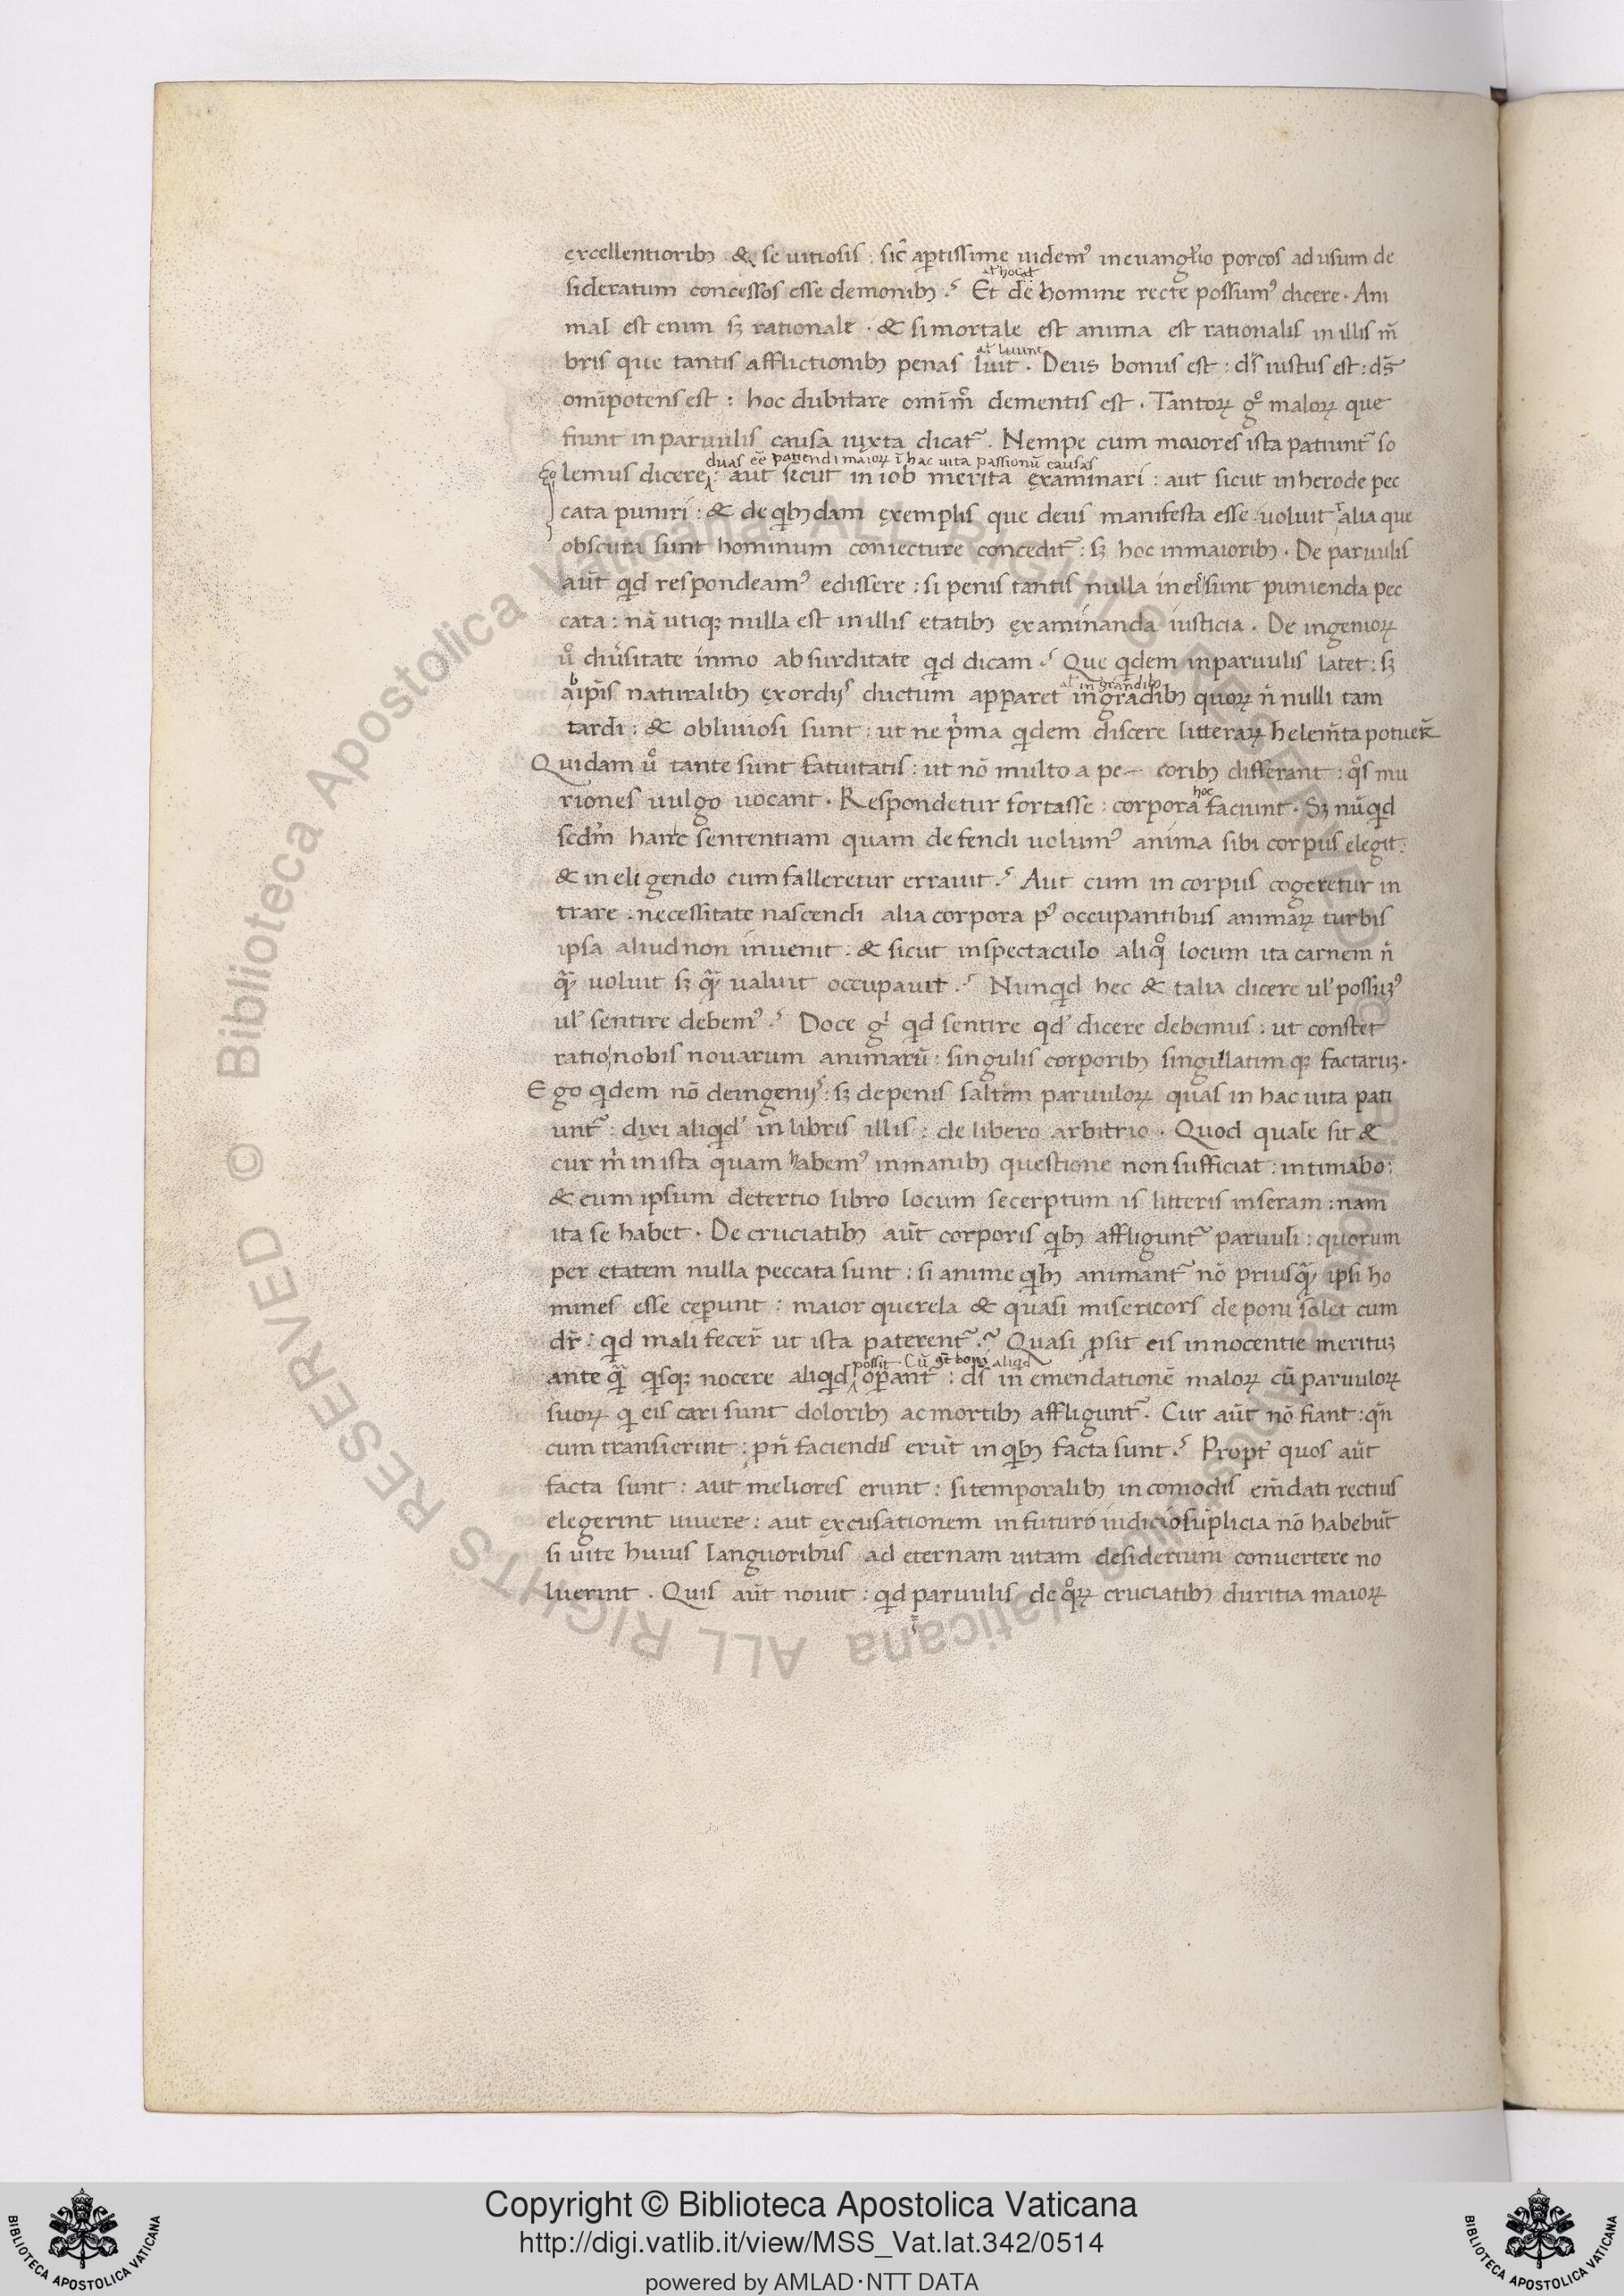 excellentiorib; & se uitiosis : sic̄ aptissime uidemꝰ in euangl̄io porcos ad usum de
sideratum concessos esse demonib; . Et de homine recte possumꝰ dicere . Ani
al̄ hoc at
mal est enim sꝫ rationale . & si mortale est anima est rationalis in illis m̄
bris que tantis afflictionib; penas luit . Deus bonus est : ds̄ iustus est : ds̄
al̄ luunt
omīpotens est : hoc dubitare omīm̊ dementis est . Tantoꝝ g̊ maloꝝ que
fiunt in paruulis causa iuxta dicat᷑ . Nempe cum maiores ista patiunt᷑ so
duas eē patiendi maioꝝ ī hac uita passionū causas
lemus dicere : aut sicut in iob merita examinari : aut sicut in herode pec
cata puniri : & de qb;dam exemplis que deus manifesta esse uoluit alia que
obscura sunt hominum coniecture concedit᷑ : sꝫ hoc in maiorib; . De paruulis
aut̄ qd respondeamꝰ edissere : si penis tantis nulla in eis sunt punienda pec
cata : nā utiqꝫ nulla est in illis etatib; examinanda iusticia . De ingenioꝝ
ů diu̓sitate inmo absurditate qd dicam . Que qdem in paruulis latet : sꝫ
ab ip̄is naturalib; exordijs ductum apparet in grādib; quoꝝ n̄ nulli tam
al̄ in grandib;
tardi : & obliuiosi sunt : ut ne pͥma qdem discere litteraꝝ helem̄ta potuer̄
Quidam ů tante sunt fatuitatis : ut nō multo a pe- corib; differant : qͦs mu
riones uulgo uocant . Respondetur fortasse : corpora hoc faciunt . Sꝫ nūqd
scdm̄ hanc sententiam quam defendi uolumꝰ anima sibi corpus elegit :
& in eligendo cum falleretur errauit . Aut cum in corpus cogeretur in
trare . necessitate nascendi alia corpora pꝰ occupantibus animaꝝ turbis
ipsa aliud non inuenit . & sicut in spectaculo aliqͦ locum ita carnem n̄
quā uoluit sꝫ quā ualuit occupauit . Nunqd hec & talia dicere ul̓ possuꝫꝰ
ul̓ sentire debemꝰ . Doce gͥ qd sentire qd̓ dicere debemus : ut constet
ratio nobis nouarum animarū : singulis corporib; singillatim qꝫ factaruꝫ .
Ego qdem nō de ingenijs : sꝫ de penis saltim paruuloꝝ quas in hac uita pati
unt᷑ : dixi aliqd̓ in libris illis : de libero arbitrio . Quod quale sit &
cur m̄ in ista quam habemꝰ in manib; questione non sufficiat : intimabo :
& eum ipsum de tertio libro locum secerptum is litteris inseram : nam
ita se habet . De cruciatib; aut̄ corporis qb; affligunt᷑ paruuli : quorum
per etatem nulla peccata sunt : si anime qb; animant᷑ nō priusquā ipsi ho
mines esse ceperunt : maior querela & quasi misericors deponi solet cum
dr̄ : qd mali fecer̄ ut ista paterent᷑ . Quasi ꝓsit eis innocentie merituꝫ
possit Cū gͣt boni aliqd
ante quā qsqꝫ nocere aliqd opant᷑ : ds̄ in emendationē maloꝝ cū paruuloꝝ
suoꝝ q eis cari sunt dolorib; ac mortib; affligunt᷑ . Cur aut̄ nō fiant : qn̄
cum transierint : pn̄ faciendis erūt in qb; facta sunt . Propt̄ quos aut̄
facta sunt : aut meliores erunt : si temporalib; incomodis em̄dati rectius
elegerint uiuere : aut excusationem in futuro iudicio suplicia nō habebūt
si uite huius languoribus ad eternam uitam desiderium conuertere no
luerint . Quis aut̄ nouit : qd paruulis de qͦꝝ cruciatib; duritia maioꝝ
© Biblioteca Apostolica Vaticana ALL RIGHTS RESERVED
Copyright © Biblioteca Apostolica Vaticana
http://digi.vatlib.it/view/MSS_Vat.lat.342/0514
powered by AMLAD·NTT DATA
BIBLIOTECA APOSTOLICA VATICANA
BIBLIOTECA APOSTOLICA VATICANA